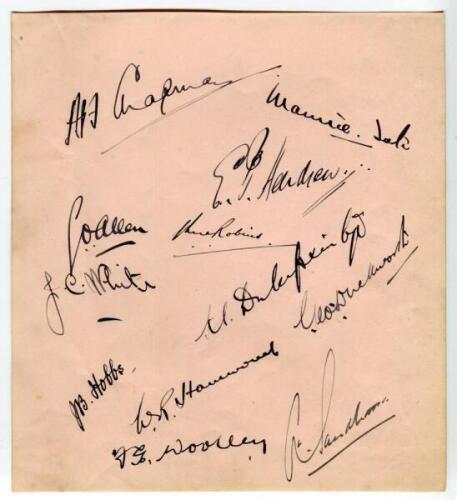 APF Chapman
Maurice Tate
E. P. Hendren
G.O. Allen
J. C. White
K. S. Duleepsinhji
Geo Duckworth
JB. Hobbs
W. R. Hammond
F. E. Woolley
A. Sandham